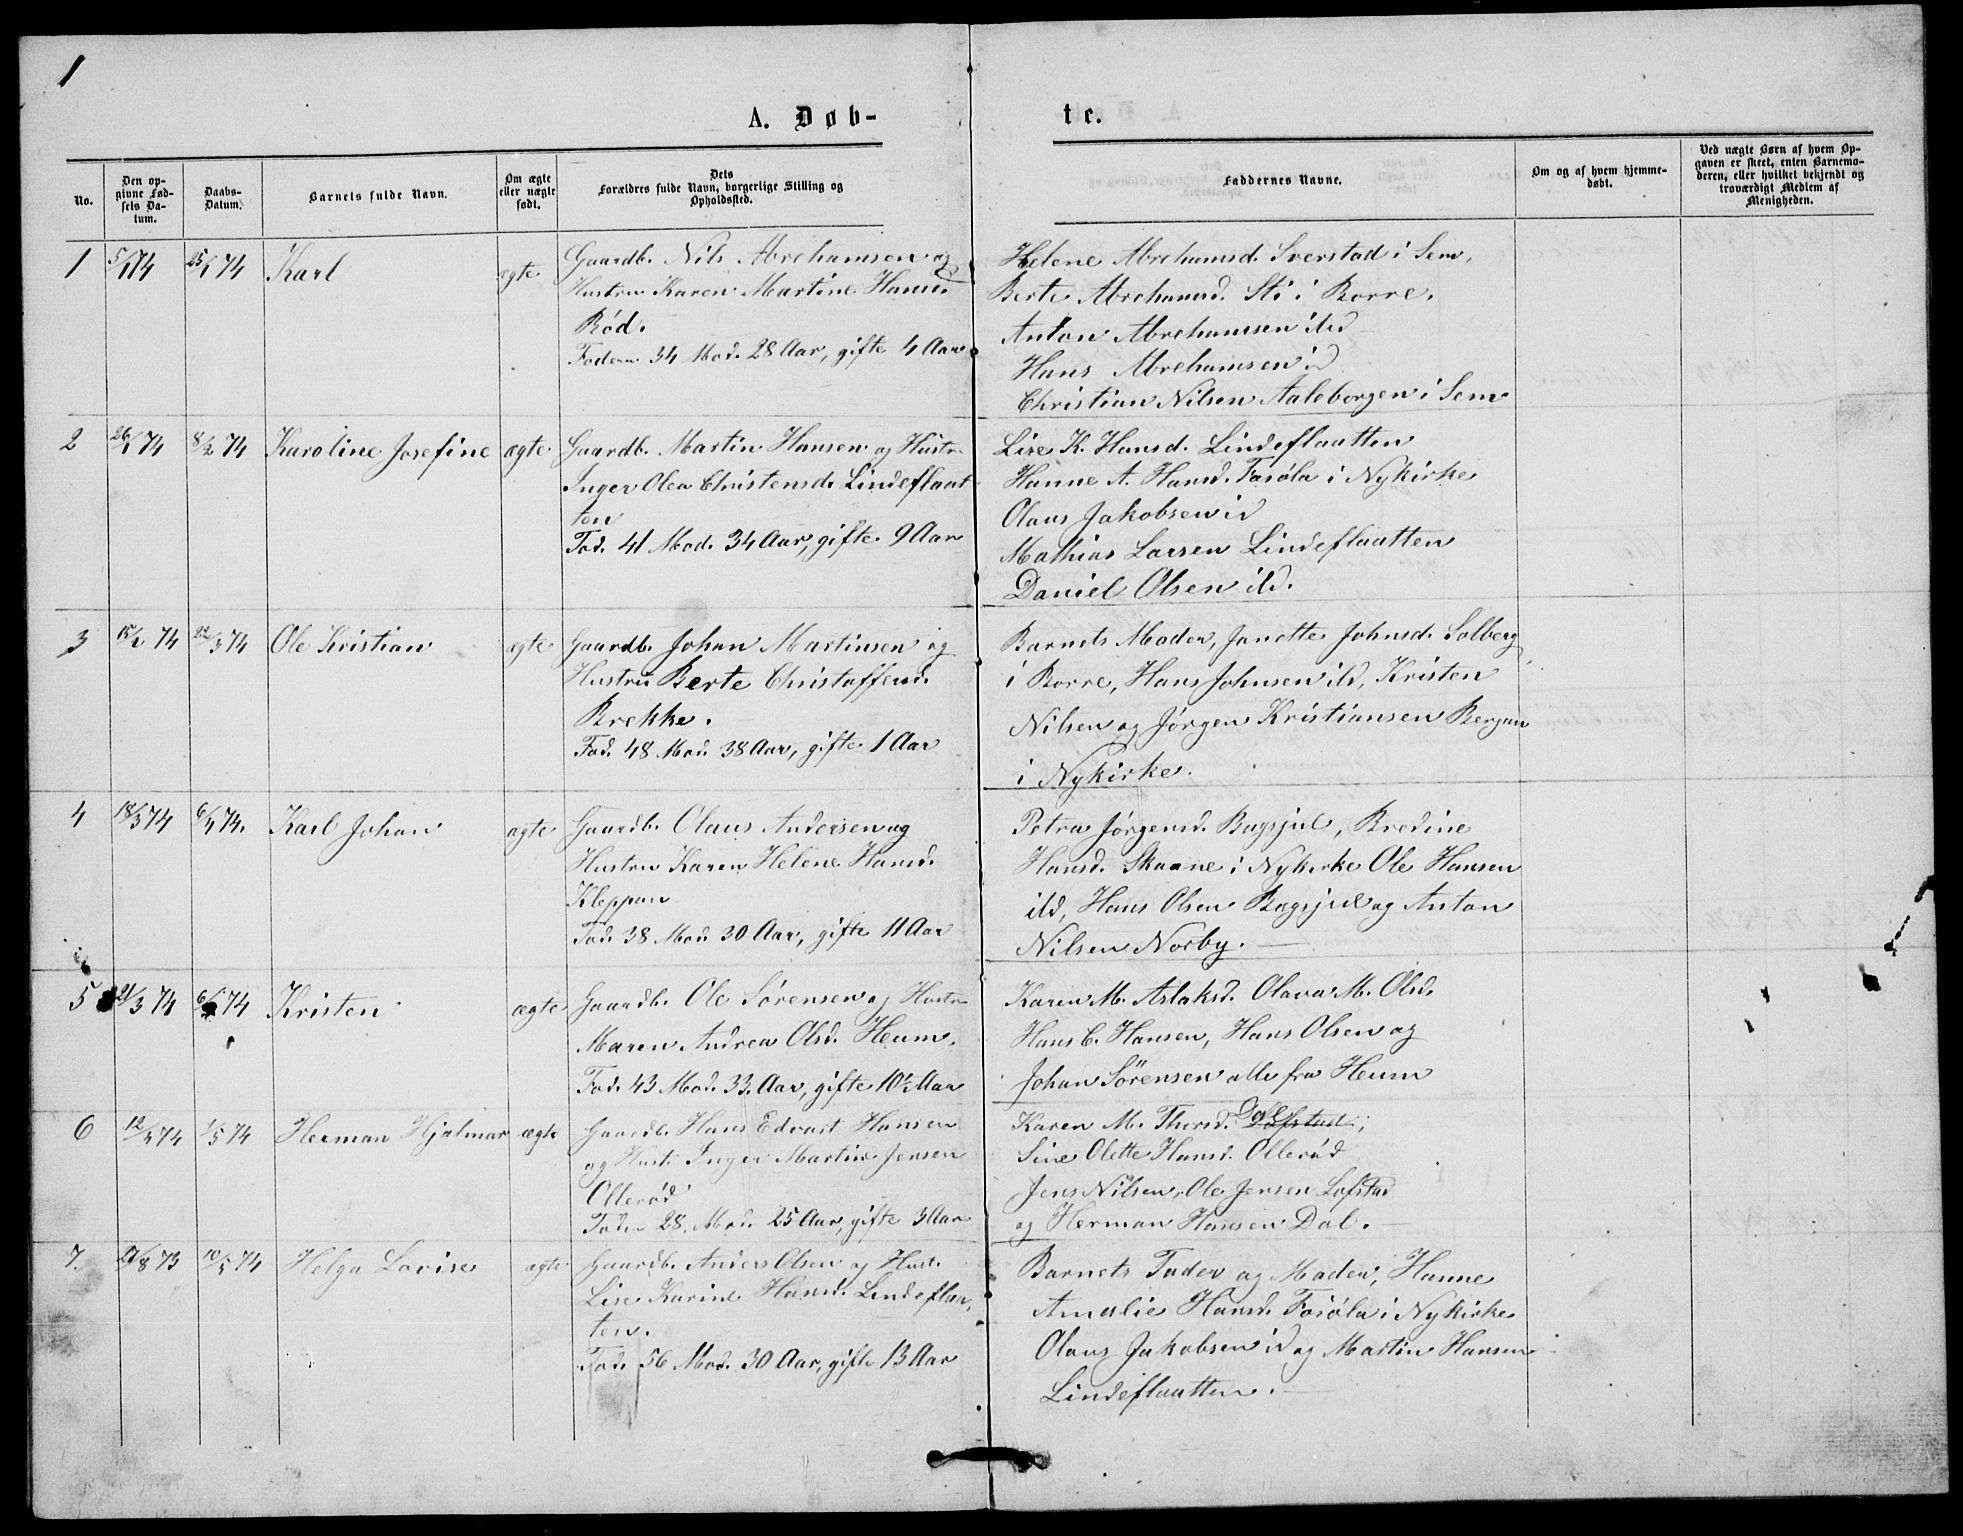 1
A. Døb-
te.
No.
Den op-
givne Fød-
sels Da-
tum.
Daabs-
Datum.
Barnets fulde Navn.
Om ægte
eller uægte
født.
Dets
Forældres fulde Navn, borgerlige Stilling og
Opholdssted.
Faddernes Navne.
Om og af hvem hjemme-
døbt.
Ved uægte Børn af hvem Op-
gaven er skeet, enten Barnemo-
deren, eller hvilket bekjendt og
troværdigt Medlem af
Menigheden.
1 5/1 74 25/1 74 Karl ægte
Gaardb. Nils Abrehamsen og
Hustru Karen Martine Hansd.
Rød.
Faderen 34 Mod. 28 Aar, gifte 4 Aar
Helene Abrehamsd. Sverstad i Sem,
Berte Abrehamsd. Sti i Borre.
Anton Abrehamsen ibd
Hans Abrehamsen id
Christian Nilsen Aaleborgen i Sem
2 26/1 74 8/2 74 Karoline Josefine ægte
Gaardb. Martin Hansen og Hustr.
Inger Olea Christensd. Lindeflaat
ten
Fad. 41 Mod. 34 Aar, gifte 9 Aar
Lise K. Hansd. Lindeflaatten
Hanne A. Hansd. Fosøla i Nykirke
Olaus Jakobsen id
Mathias Larsen Lindeflaatten
Daniel Olsen ibd.
3 15/2 74 22/3 74 Ole Kristian ægte
Gaardb. Johan Martinsen og
Hustru Berte Christoffersd.
Brekke.
Fad. 48 Mod. 38 Aar, gifte 1 Aar
Barnets Moder, Janette Johnsd. Solberg
i Borre, Hans Johnsen ibd, Kristen
Nilsen og Jørgen Kristiansen Bergan
i Nykirke.
4 18/3 74 6/4 74. Karl Johan ægte
Gaardb. Olaus Andersen og
Hustru Karen Helene Hansd.
Kleppan
Fad. 38 Mod. 30 Aar, gifte 11 Aar
Petra Jørgensd. Bugsjul, Bredine
Hansd. Skaane i Nykirke Ole Hansen
ibd, Hans Olsen Bugsjul og Anton
Nilsen Norby.
5 21/3 74 74 Kristen ægte
Gaardb. Ole Sørensen og Hustr.
Maren Andrea Olsd. Heum.
Fad. 43 Mod. 33 Aar, gifte 10½ Aar
Karen M. Aslaksd. Olava M. Olsd.
Hans C. Hansen, Hans Olsen og
Johan Sørensen alle fra Heum
6 12/4 74 1/5 74 Herman Hjalmar ægte
Gaardb. Hans Edvart Hansen
og Hust. Inger Martine Jensen
Ollerød
Fader 28. Mod. 25 Aar, gifte 3 Aar
Karen M. Thorsd. Dal Lofstad;
Sine Olette Hansd. Ollerød
Jens Nilsen, Ole Jensen Lofstad
og Herman Hansen Dal.
7. /8 73 10/5 74 Helga Lovise ægte
Gaardb. Anders Olsen og Hust.
Lise Karine Hansd. Lindeflaa,
ten.
Fad. 56 Mod. 30 Aar, gifte 13 Aar
Barnets Fader og Moder, Hanne
Amalie Hansd. Fosøla i Nykirke
Olaus Jakobsen id og Martin Hansen
Lindeflaatten.